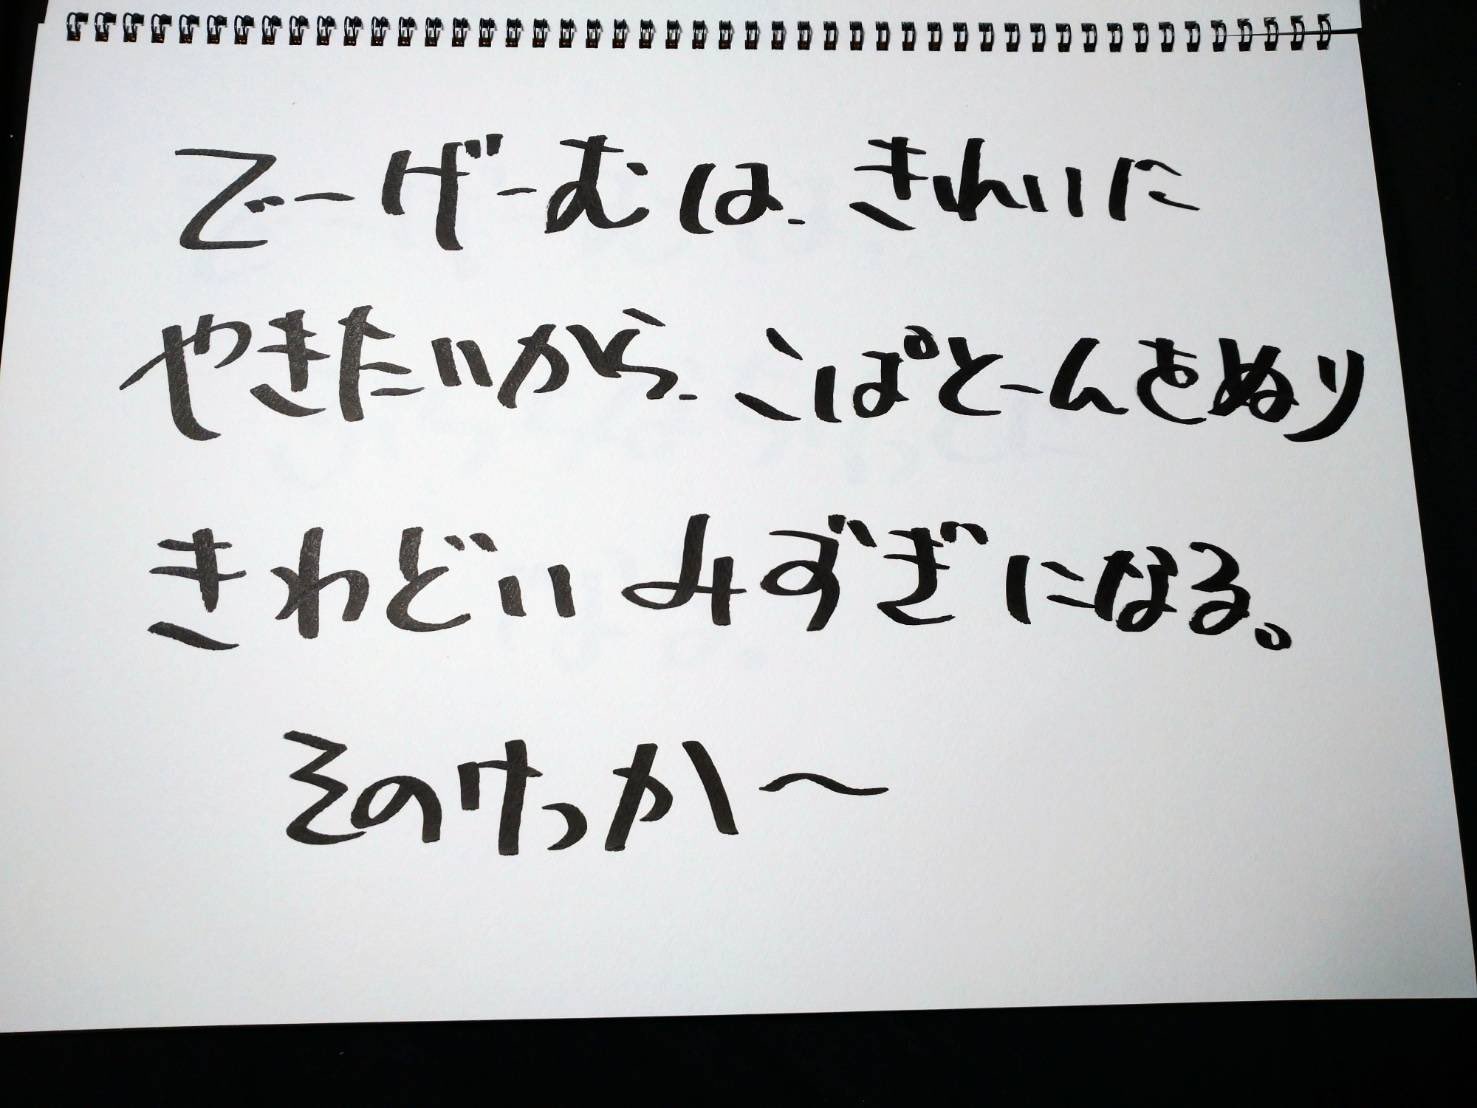 でーげーむは、きれいに
やきたいから、こぱとーんをぬり
きわどいみずぎになる。
そのけっか〜